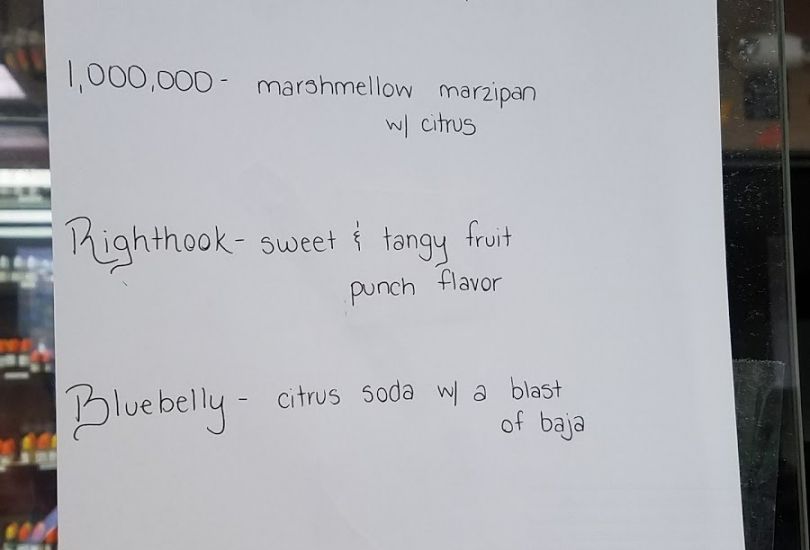 1,000,000 - marshmellow marzipan
w/ citrus
Righthook - sweet & tangy fruit
punch flavor
Bluebelly - citrus soda w/ a blast
of baja